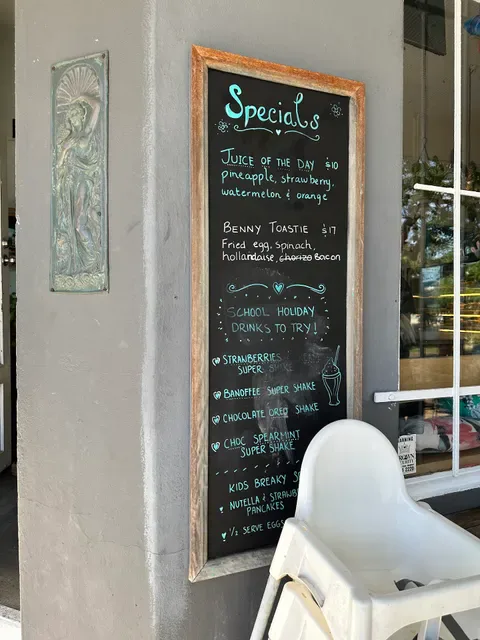 Specials
JUICE OF THE DAY $10
pineapple, strawberry,
watermelon & orange
BENNY TOASTIE $17
Fried egg, spinach,
hollandaise, chorizo Bacon
SCHOOL HOLIDAY
DRINKS TO TRY!
STRAWBERRIES
SUPER
BANOFFEE SUPER SHAKE
CHOCOLATE OREO SHAKE
CHOC SPEARMINT
SUPER SHAKE
KIDS BREAKY
NUTELLA & STRAWB
PANCAKES
1/2 SERVE EGGS
WARNING